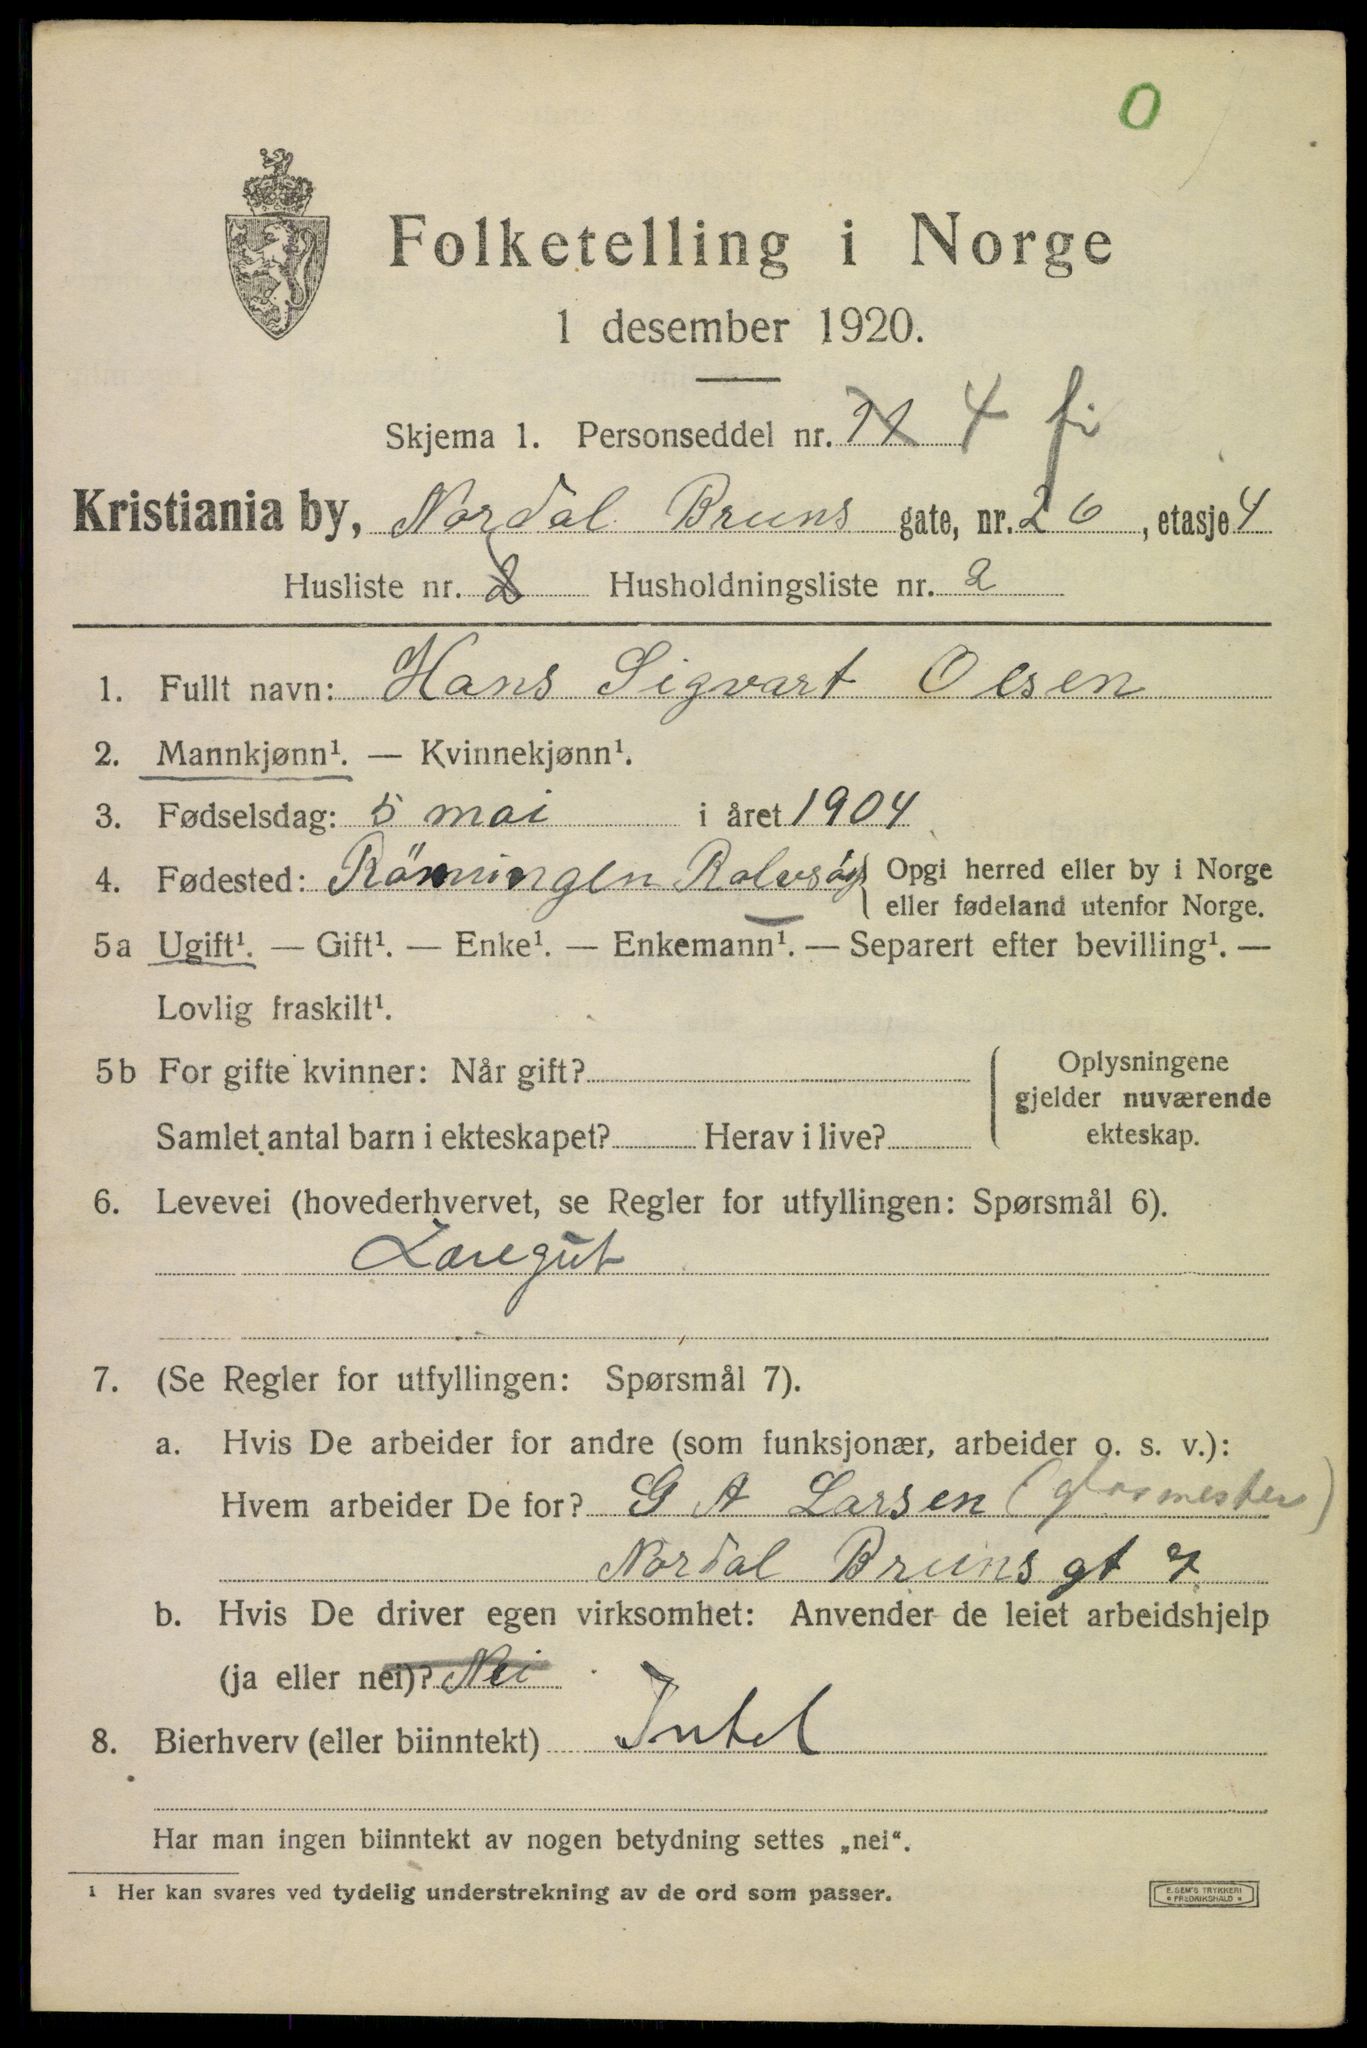 O
Folketelling i Norge
1 desember 1920.
Skjema 1. Personseddel nr. 11 4 fi
Kristiania by, Nordal Bruns gate, nr. 26, etasje 4
Husliste nr. 2 Husholdningsliste nr. 2
1. Fullt navn: Hans Sigvart Olsen
2. Mannkjønn¹. — Kvinnekjønn¹.
3. Fødselsdag: 5 mai i året 1904
4. Fødested: Rönningen Rolvsöy { Opgi herred eller by i Norge
eller fødeland utenfor Norge.
5a Ugift¹. — Gift¹. — Enke¹. — Enkemann¹. — Separert efter bevilling¹. —
Lovlig fraskilt¹.
5b For gifte kvinner: Når gift?
Oplysningene
gjelder nuværende
ekteskap.
Samlet antal barn i ekteskapet? Herav i live?
6. Levevei (hovederhvervet, se Regler for utfyllingen: Spørsmål 6).
Læregut
7. (Se Regler for utfyllingen: Spørsmål 7).
a. Hvis De arbeider for andre (som funksjonær, arbeider o. s. v.):
Hvem arbeider De for? G A Larsen (glasmester)
Nordal Bruns gt 7
b. Hvis De driver egen virksomhet: Anvender de leiet arbeidshjelp
(ja eller nei)? Nei
8. Bierhverv (eller biinntekt) Intet
Har man ingen biinntekt av nogen betydning settes „nei“.
¹ Her kan svares ved tydelig understrekning av de ord som passer.
E. SEM'S TRYKKERI
FREDRIKSHALD